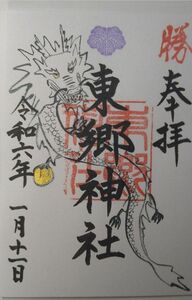 勝
奉拝
東郷神社
令和六年
一月十一日